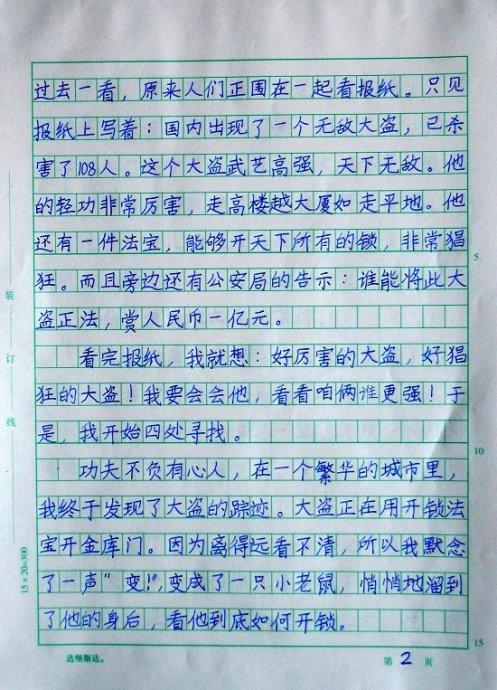 过去一看，原来人们正围在一起看报纸。只见
报纸上写着：国内出现了一个无敌大盗，已杀
害了108人。这个大盗武艺高强，天下无敌。他
的轻功非常厉害，走高楼越大厦如走平地。他
还有一件法宝，能够开天下所有的锁，非常猖
狂。而且旁边还有公安局的告示：谁能将此大
盗正法，赏人民币一亿元。
看完报纸，我就想：好厉害的大盗，好猖
狂的大盗！我要会会他，看看咱俩谁更强！于
是，我开始四处寻找。
功夫不负有心人，在一个繁华的城市里，
我终于发现了大盗的踪迹。大盗正在用开锁法
宝开金库门。因为离得远看不清，所以我默念
了一声“变！”，变成了一只小老鼠，悄悄地溜到
了他的身后，看他到底如何开锁。
装
订
线
15×20=300
5
10
15
达堡斯达。
第2页